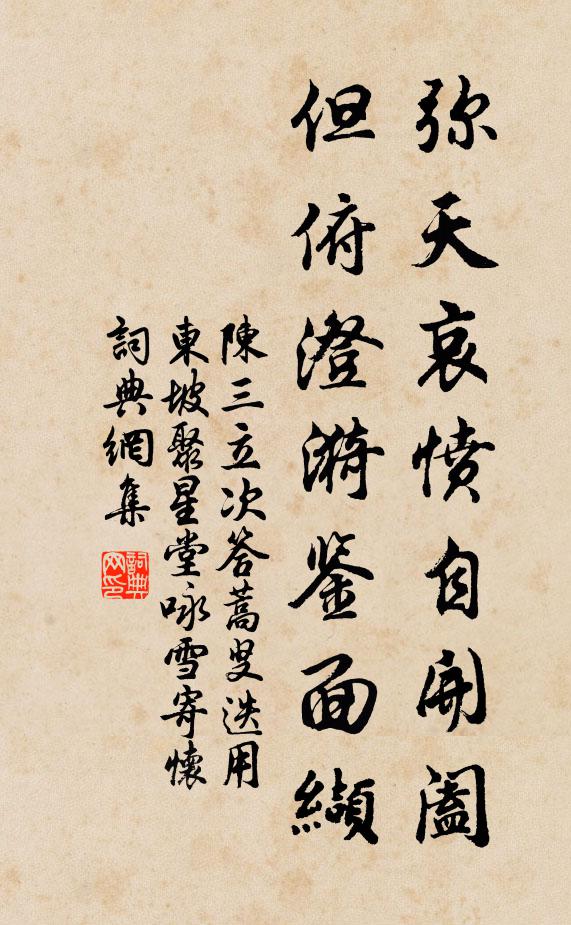 弥天哀愤自開阖
但俯澄漪鉴面纈
陳三立次答蒿叟迭用
東坡聚星堂咏雪寄懷
詞典網集
詞典网印